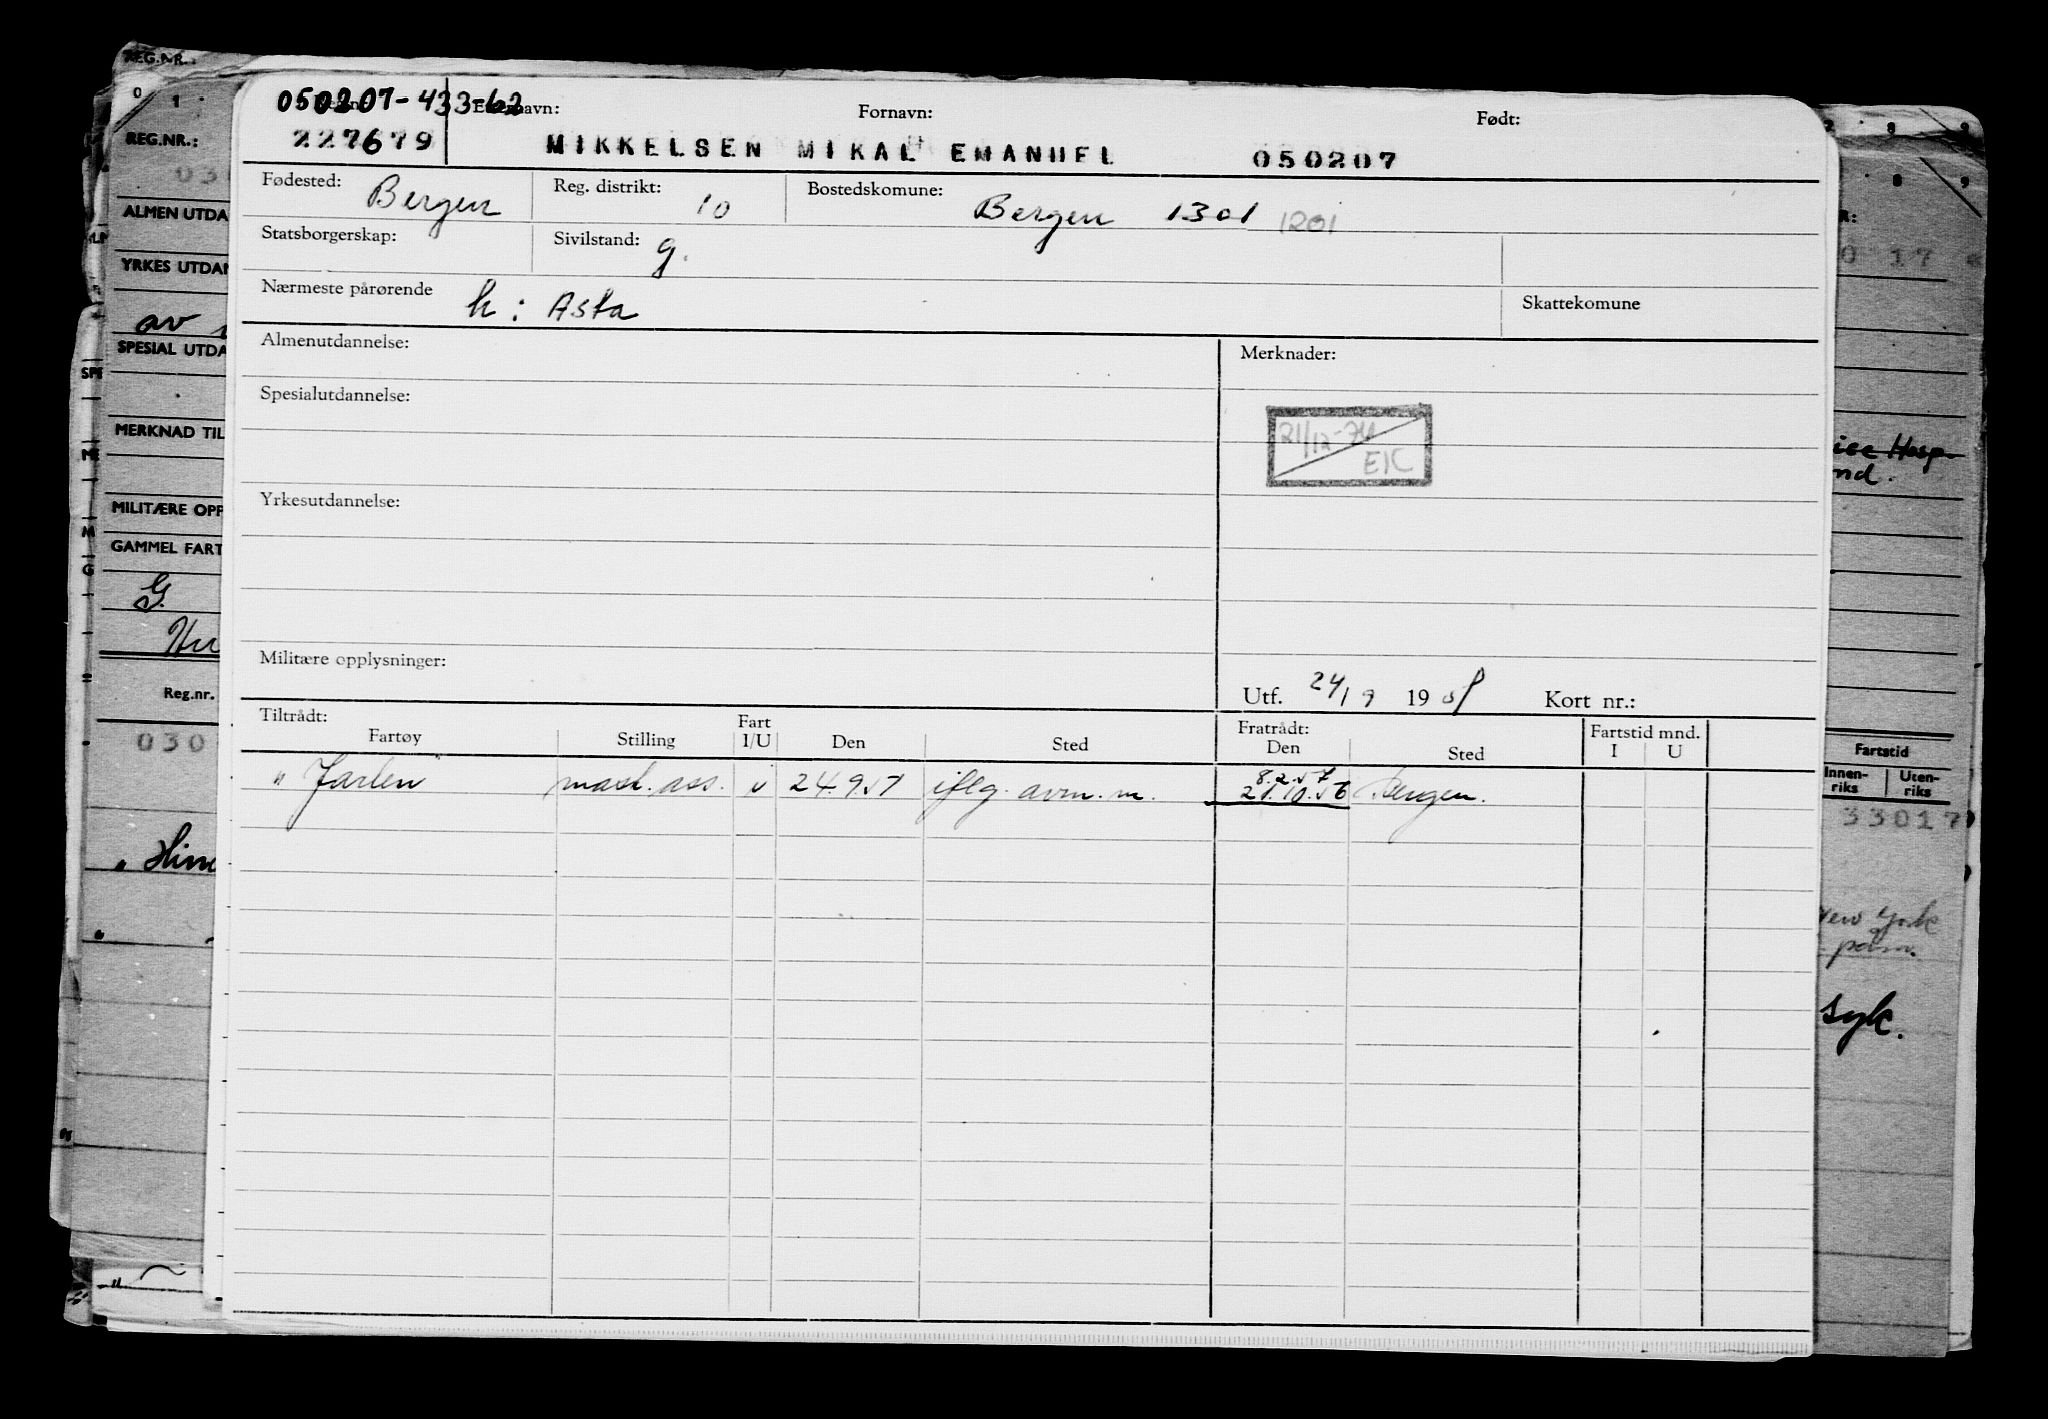 REG.NR.:
0 1
050207-433-62
Etternavn: Fornavn: Født:
REG.NR.:
227679 MIKKELSEN MIKAL EMANUEL 050207
030
Fødested: Bergen Reg. distrikt: 10 Bostedskomune: Bergen 1301 1201
ALMEN UTDA
Statsborgerskap: Sivilstand: g.
0 17
YRKES UTDAN
Nærmeste pårørende h: Asta Skattekomune
av
SPESIAL UTDA
Almenutdannelse: Merknader:
Spesialutdannelse:
21/12-74
EK
MERKNAD TIL
ice Hosp.
nd.
Yrkesutdannelse:
MILITÆRE OPP
GAMMEL FART
G.
Militære opplysninger:
Utf. 24/9 19 Kort nr.:
Reg.nr.
Tiltrådt: Fratrådt: Fartstid mnd.
Fartøy Stilling Fart I/U Den Sted Den Sted I U
030
Fartstid
Innen-riks Uten-riks
33017
" Jarlen" mask. ass. 24.9.51 iflg. avm. m. 8.2.57
21.10.56 Bergen.
New York
syk.